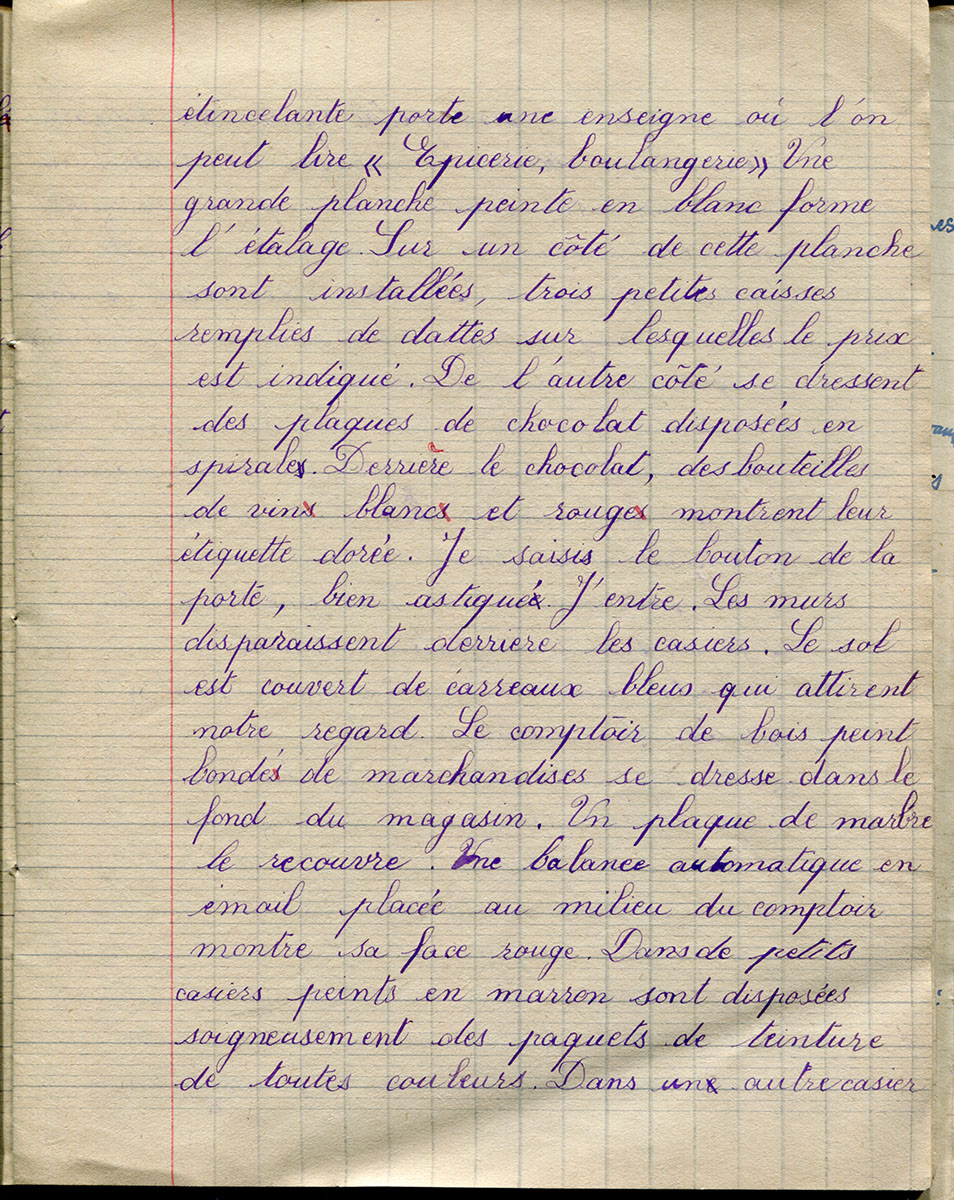 étincelante porte une enseigne où l'on
peut lire « Epicerie, boulangerie » Une
grande planche peinte en blanc forme
l'étalage. Sur un côté de cette planche
sont installées, trois petites caisses
remplies de dattes sur lesquelles le prix
est indiqué. De l'autre côté se dressent
des plaques de chocolat disposées en
spirales. Derrière le chocolat, des bouteilles
de vins blancs et rouges montrent leur
étiquette dorée. Je saisis le bouton de la
porte, bien astiqué. J'entre. Les murs
disparaissent derriere les casiers. Le sol
est couvert de carreaux bleus qui attirent
notre regard. Le comptoir de bois peint
bondés de marchandises se dresse dans le
fond du magasin. Un plaque de marbre
le recouvre. Une balance automatique en
émail placée au milieu du comptoir
montre sa face rouge. Dans de petits
casiers peints en marron sont disposées
soigneusement des paquets de teinture
de toutes couleurs. Dans une autre casier